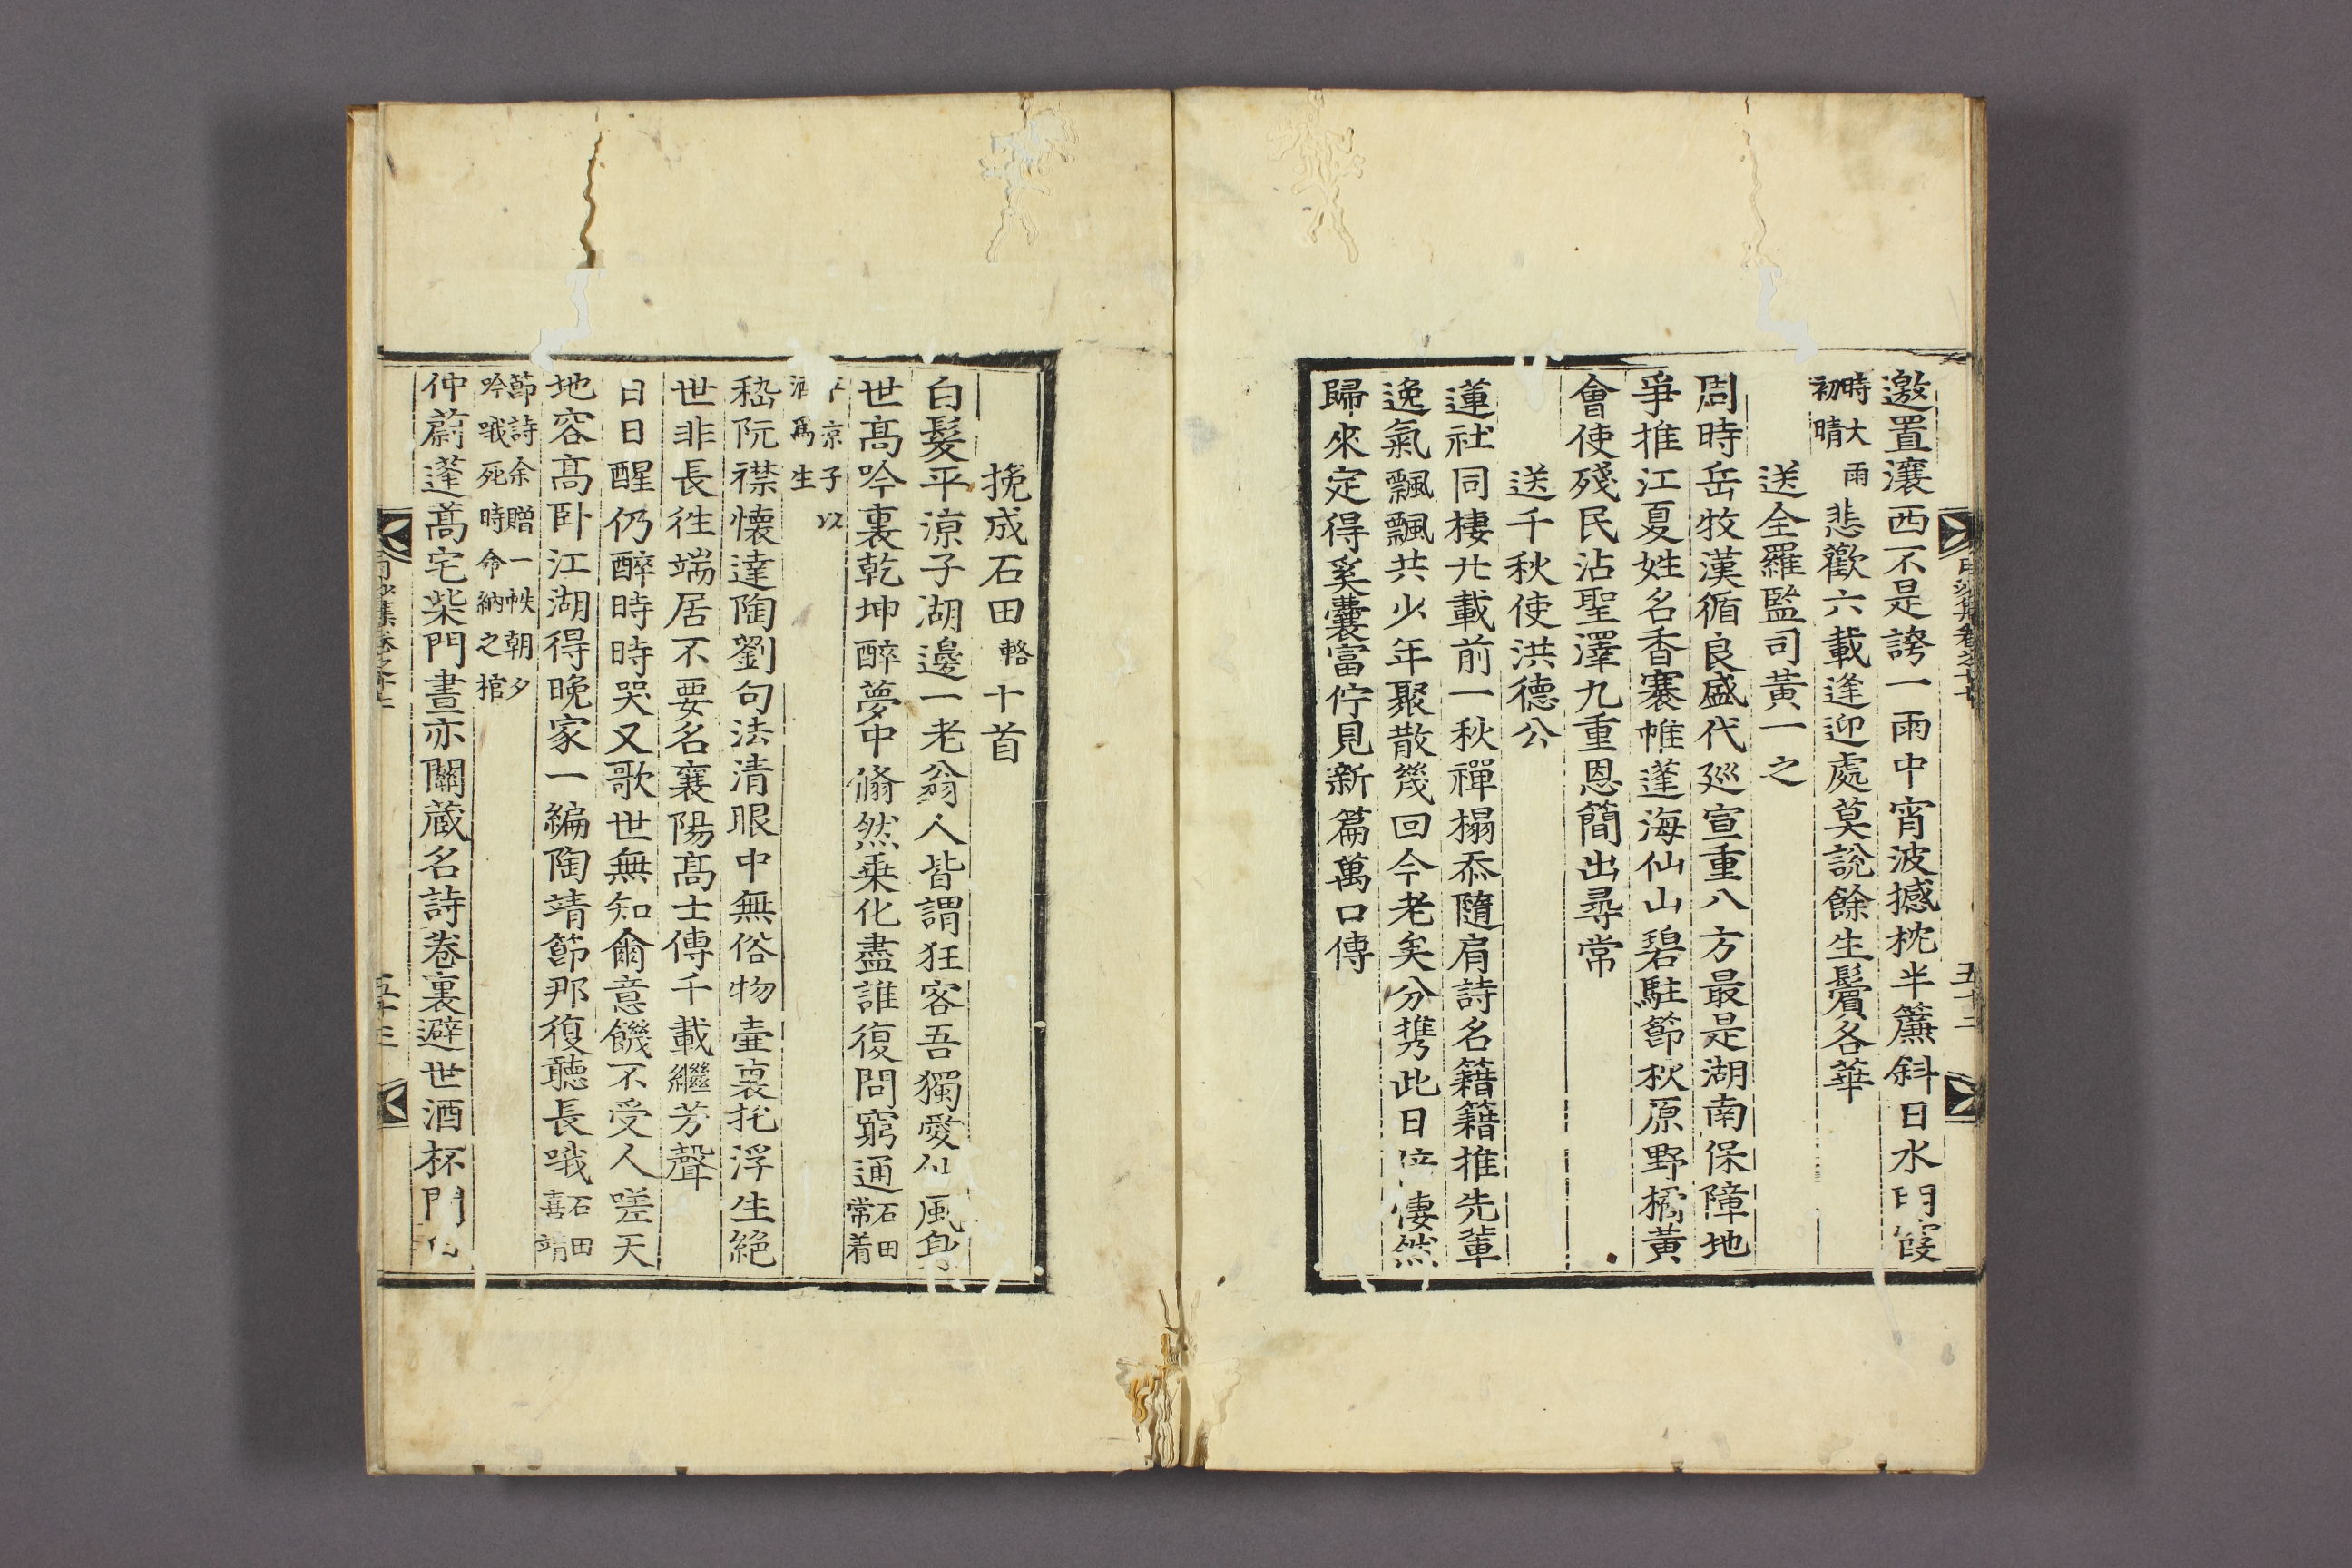 邀置瀼西不是誇一雨中宵波撼枕半簾斜日水明霞
時大雨
初晴
悲歡六載逢迎處莫說餘生鬢各華
送全羅監司黃一之
周時岳牧漢循良盛代廵宣重八方最是湖南保障地
爭推江夏姓名香褰帷蓬海仙山碧駐節秋原野橘黃
會使殘民沾聖澤九重恩簡出尋常
送千秋使洪德公
蓮社同棲廿載前一秋禪榻忝隨肩詩名籍籍推先輩
逸氣飄飄共少年聚散幾回今老矣分携此日悽然
歸來定得奚囊富佇見新篇萬口傳
五十二
挽成石田輅十首
白髮平涼子湖邊一老翁人皆謂狂客吾獨愛仙風身
世高吟裏乾坤醉夢中翛然乗化盡誰復問窮通
石田
常着
平凉子以
酒爲生
嵇阮襟懷達陶劉句法清眼中無俗物壷裏托浮生絕
世非長徃端居不要名襄陽高士傳千載繼芳聲
日日醒仍醉時時哭又歌世無知爾意饑不受人嗟天
地容高卧江湖得晚家一編陶靖節那復聽長哦
石田
喜靖
節詩余贈一帙朝夕
吟哦死時命納之棺
仲蔚蓬蒿宅柴門晝亦關藏名詩卷裏避世酒杯門
五十三